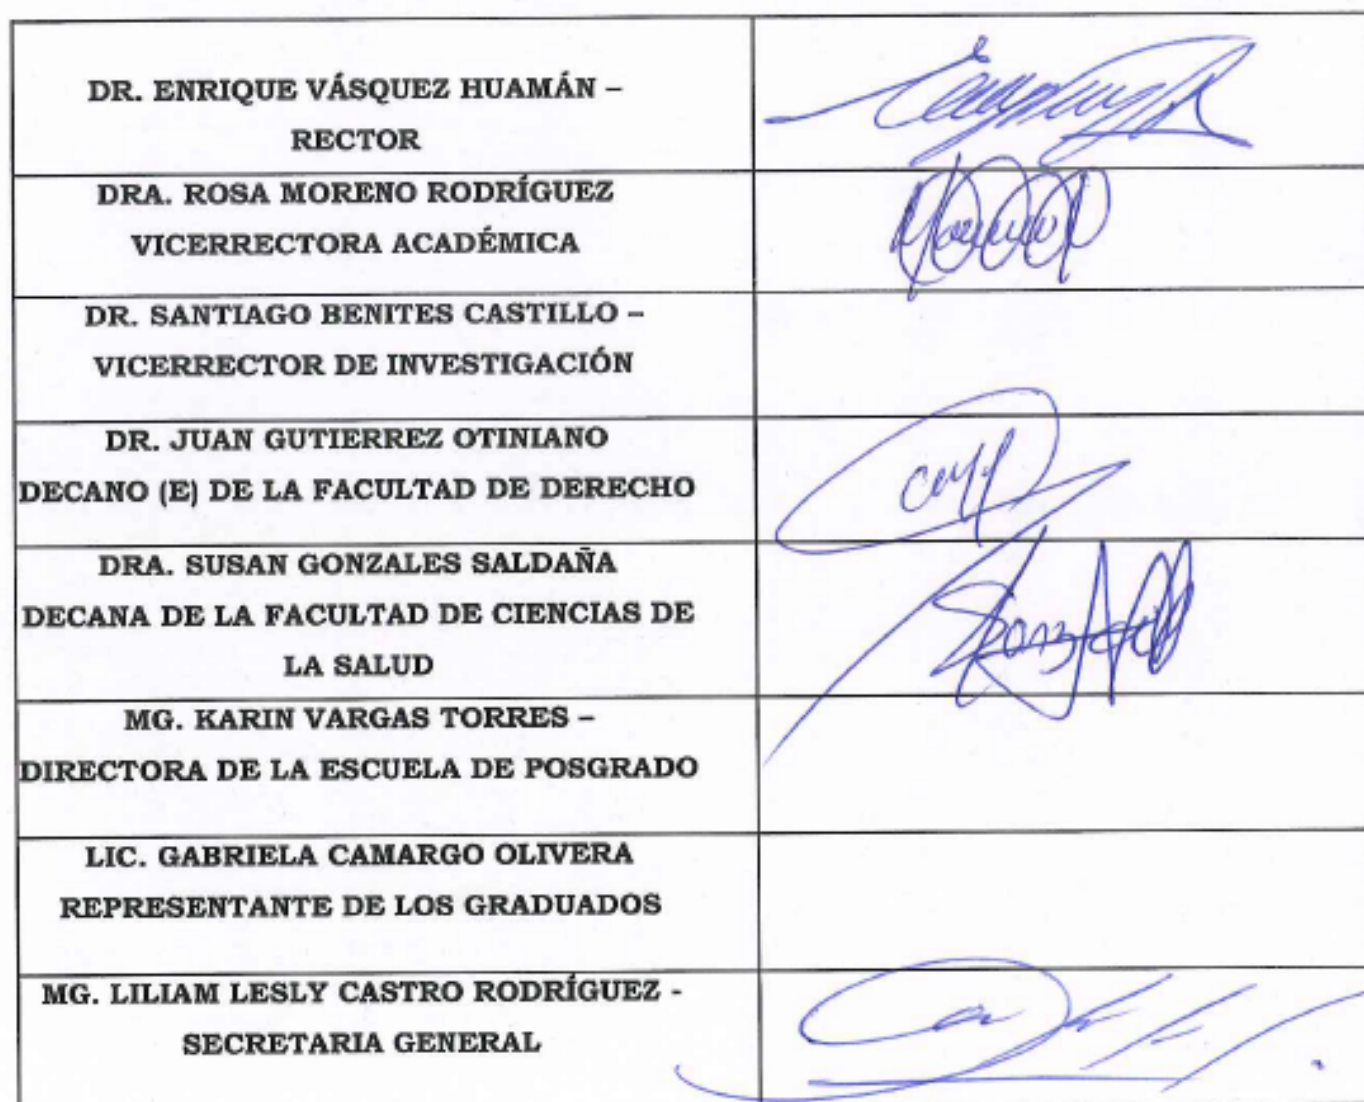 DR. ENRIQUE VÁSQUEZ HUAMÁN –
RECTOR
DRA. ROSA MORENO RODRÍGUEZ
VICERRECTORA ACADÉMICA
DR. SANTIAGO BENITES CASTILLO –
VICERRECTOR DE INVESTIGACIÓN
DR. JUAN GUTIERREZ OTINIANO
DECANO (E) DE LA FACULTAD DE DERECHO
DRA. SUSAN GONZALES SALDAÑA
DECANA DE LA FACULTAD DE CIENCIAS DE
LA SALUD
MG. KARIN VARGAS TORRES –
DIRECTORA DE LA ESCUELA DE POSGRADO
LIC. GABRIELA CAMARGO OLIVERA
REPRESENTANTE DE LOS GRADUADOS
MG. LILIAM LESLY CASTRO RODRÍGUEZ -
SECRETARIA GENERAL